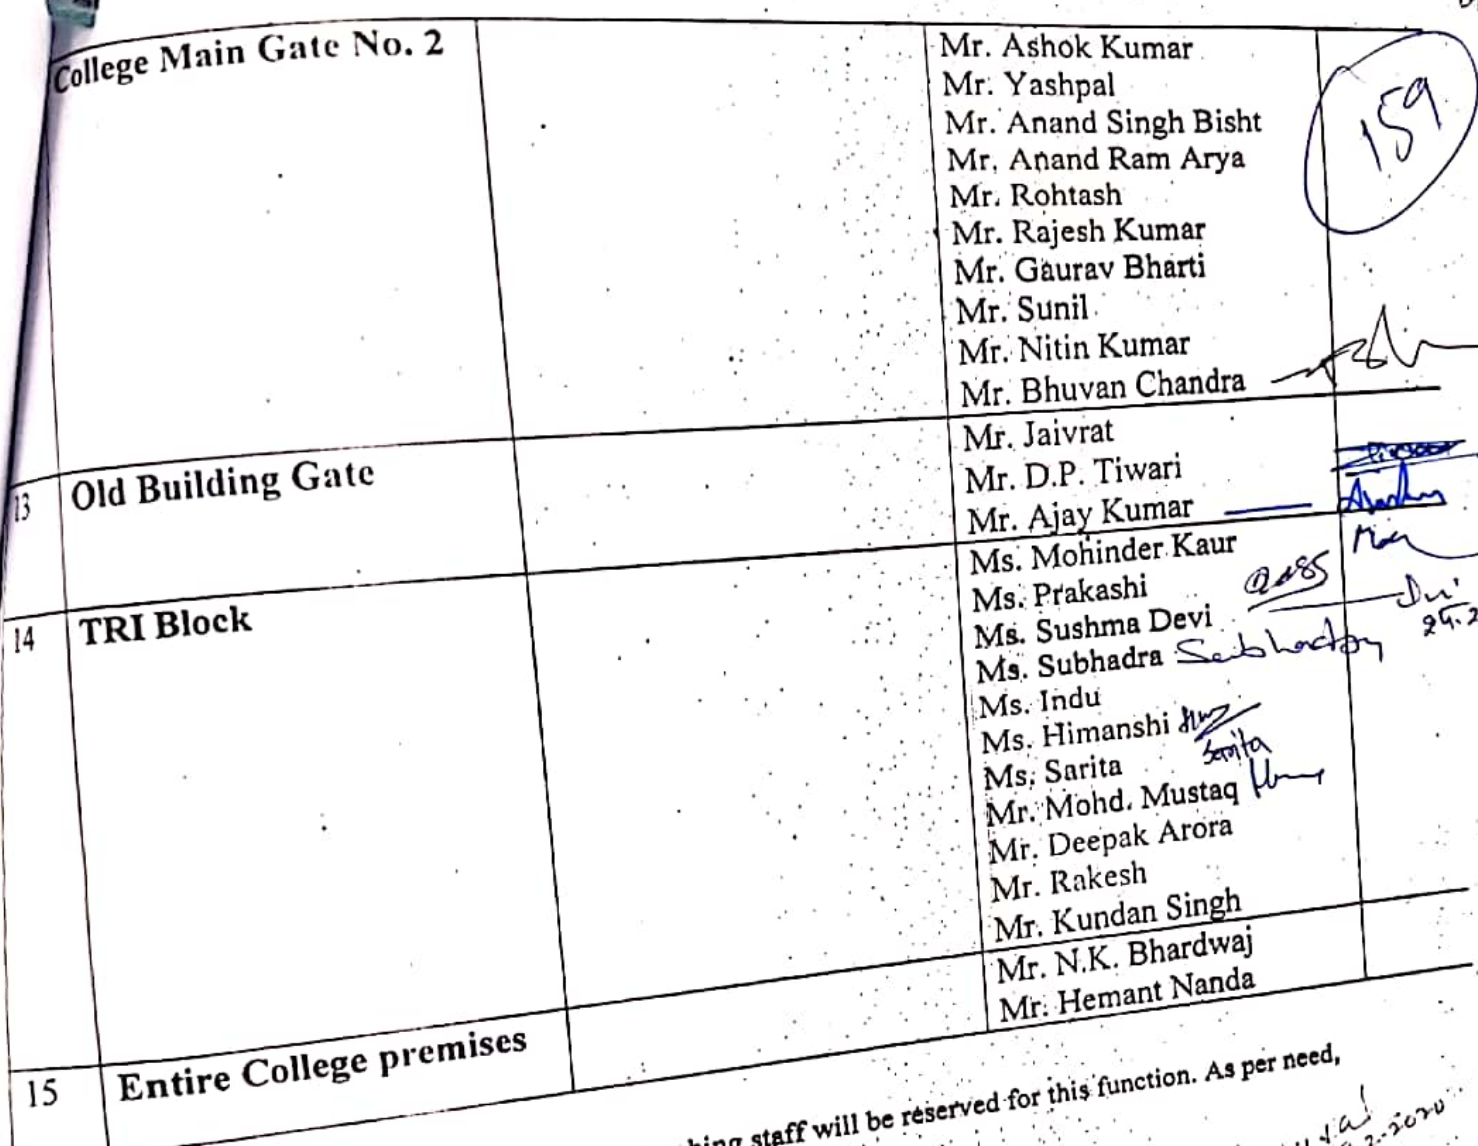 College Main Gate No. 2
Mr. Ashok Kumar
Mr. Yashpal
Mr. Anand Singh Bisht
Mr. Anand Ram Arya
Mr. Rohtash
Mr. Rajesh Kumar
Mr. Gaurav Bharti
Mr. Sunil
Mr. Nitin Kumar
Mr. Bhuvan Chandra
159
13 Old Building Gate
Mr. Jaivrat
Mr. D.P. Tiwari
Mr. Ajay Kumar
14 TRI Block
Ms. Mohinder Kaur
Ms. Prakashi
Ms. Sushma Devi
Ms. Subhadra
Ms. Indu
Ms. Himanshi
Ms. Sarita Sarita
Mr. Mohd. Mustaq
Mr. Deepak Arora
Mr. Rakesh
Mr. Kundan Singh
15 Entire College premises
Mr. N.K. Bhardwaj
Mr. Hemant Nanda
staff will be reserved for this function. As per need,